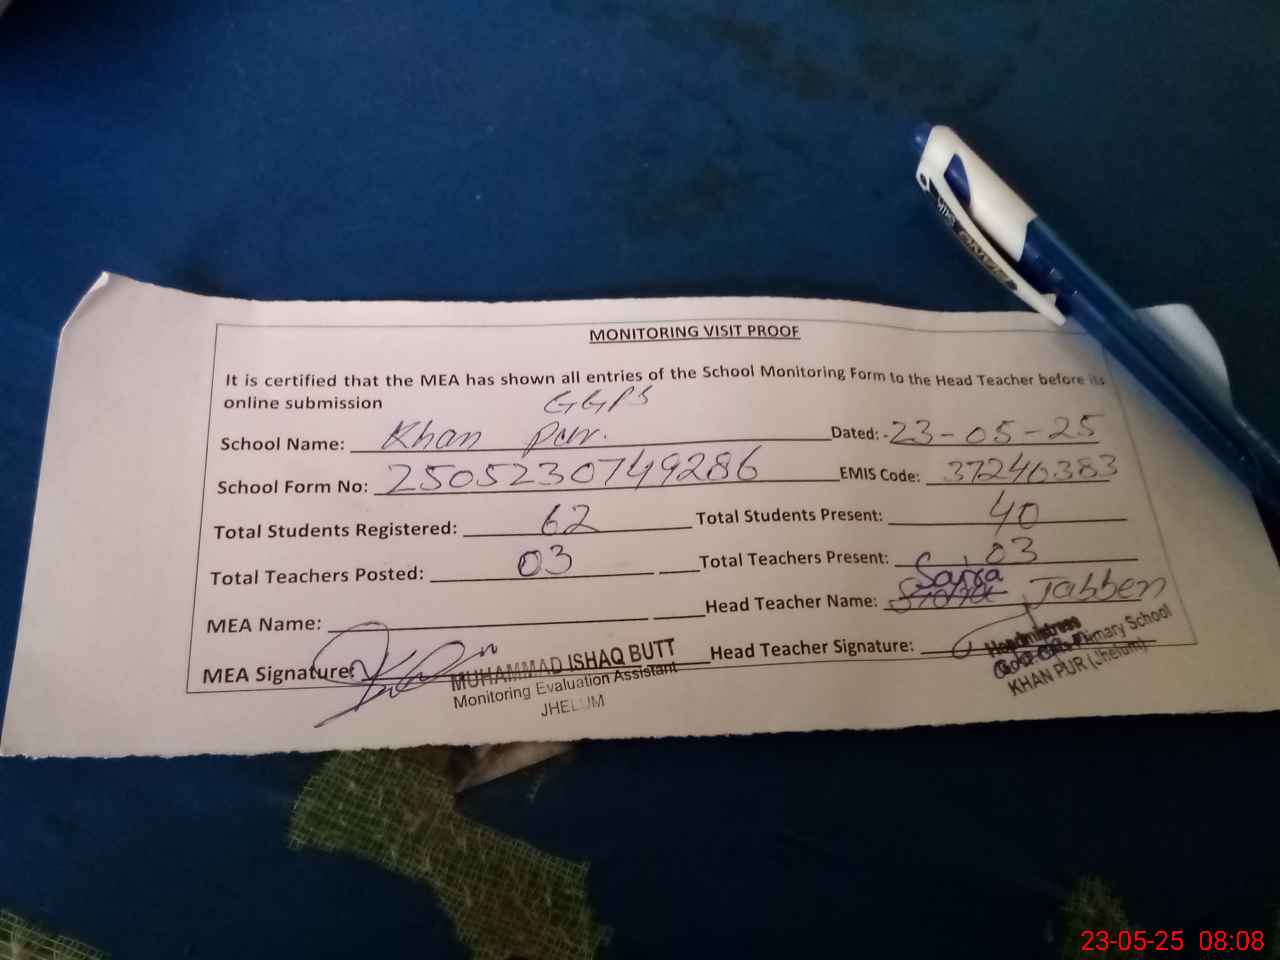 MONITORING VISIT PROOF
It is certified that the MEA has shown all entries of the School Monitoring Form to the Head Teacher before its
online submission
GGPS
School Name: Khan pur. Dated: 23-05-25
School Form No: 2505230749286 EMIS Code: 37240383
Total Students Registered: 62 Total Students Present: 40
Total Teachers Posted: 03 Total Teachers Present: 03
MEA Name: Head Teacher Name: Jabben
MEA Signature: Head Teacher Signature:
MUHAMMAD ISHAQ BUTT
Monitoring Evaluation Assistant
JHELUM
Headmistress
Primary School
KHAN PUR (Jhelum)
23-05-25 08:08